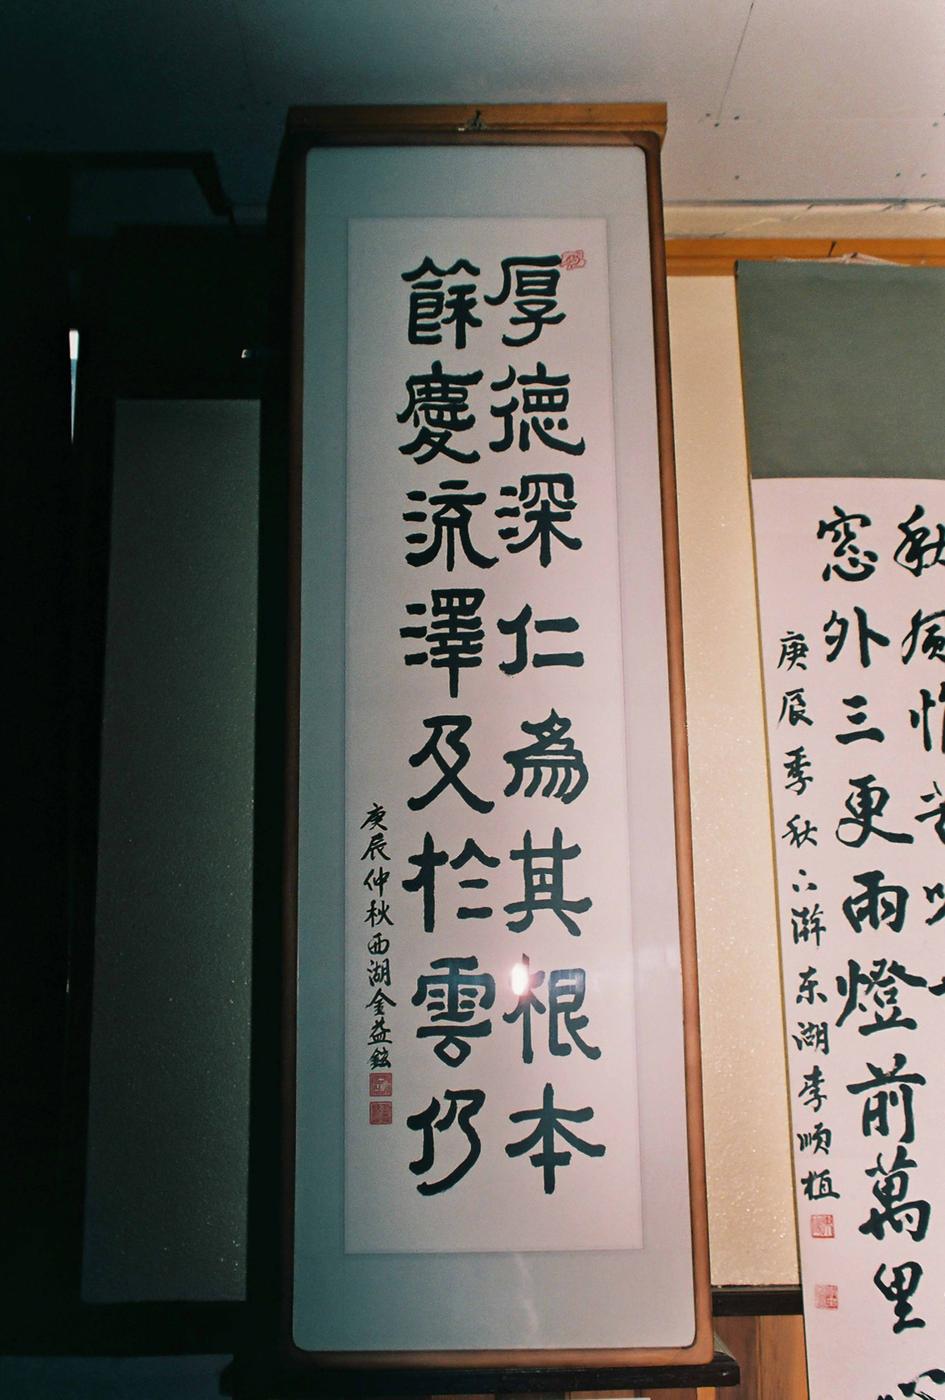 厚德深仁為其根本
餘慶流澤及於雲仍
庚辰仲秋西湖金益鉉
秋風惟苦吟
窓外三更雨燈前萬里
庚辰季秋下澣东湖李順植